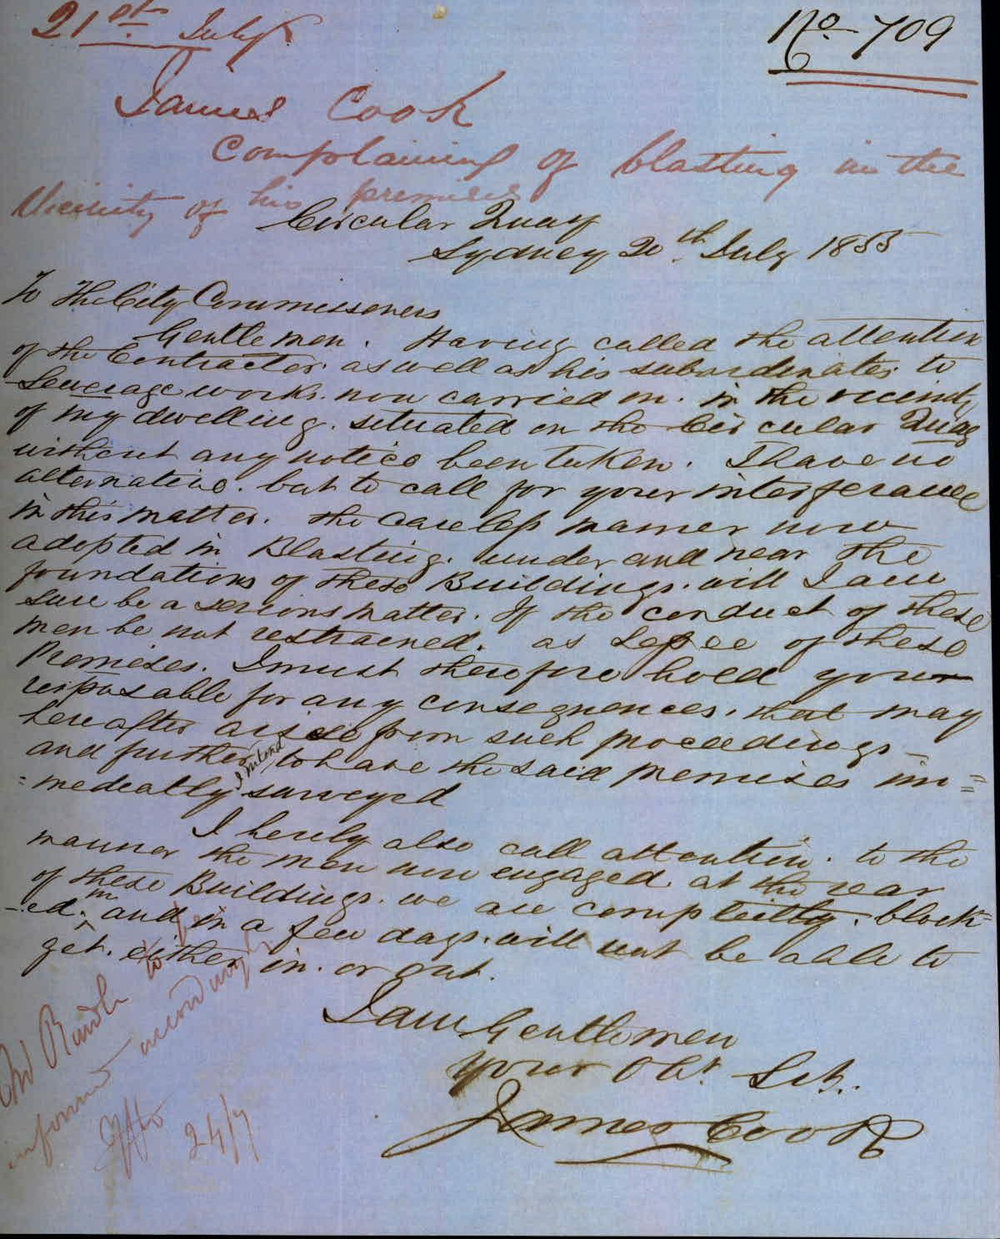 21st July
No 709
James Cook
Complaining of blasting in the
Vicinity of his premises
Circular Quay
Sydney 20th July 1855
To The City Commissoners
Gentlemen. Having called the attention
of the Contractor. as well as his subordinates to
Sewerage works. now carried on. in the vicinity
of my dwelling. situated on the Circular Quay
without any notice been taken. I have no
alternative. but to call for your interferance
in this matter. the careless manner now
adopted in Blasting. under and near the
foundations of these Buildings. will I am
sure be a serious matter. If the conduct of these
men be not restrained. as Lessee of these
Premises. I must therefore hold your
responsable for any consequences. that may
hereafter arise from such proceedings
and further I intend to have the said premises im=
=mediatly surveyed
I hereby also call attention. to the
manner the men now engaged. at the rear
of these Buildings. we are compleitly. block=
-ed. in and in a few days. will not be able to
get. either in. or out.
I am Gentlemen
your Obt. Svt.
James Cook
Mr Rindle to
inform accordingly
24/7